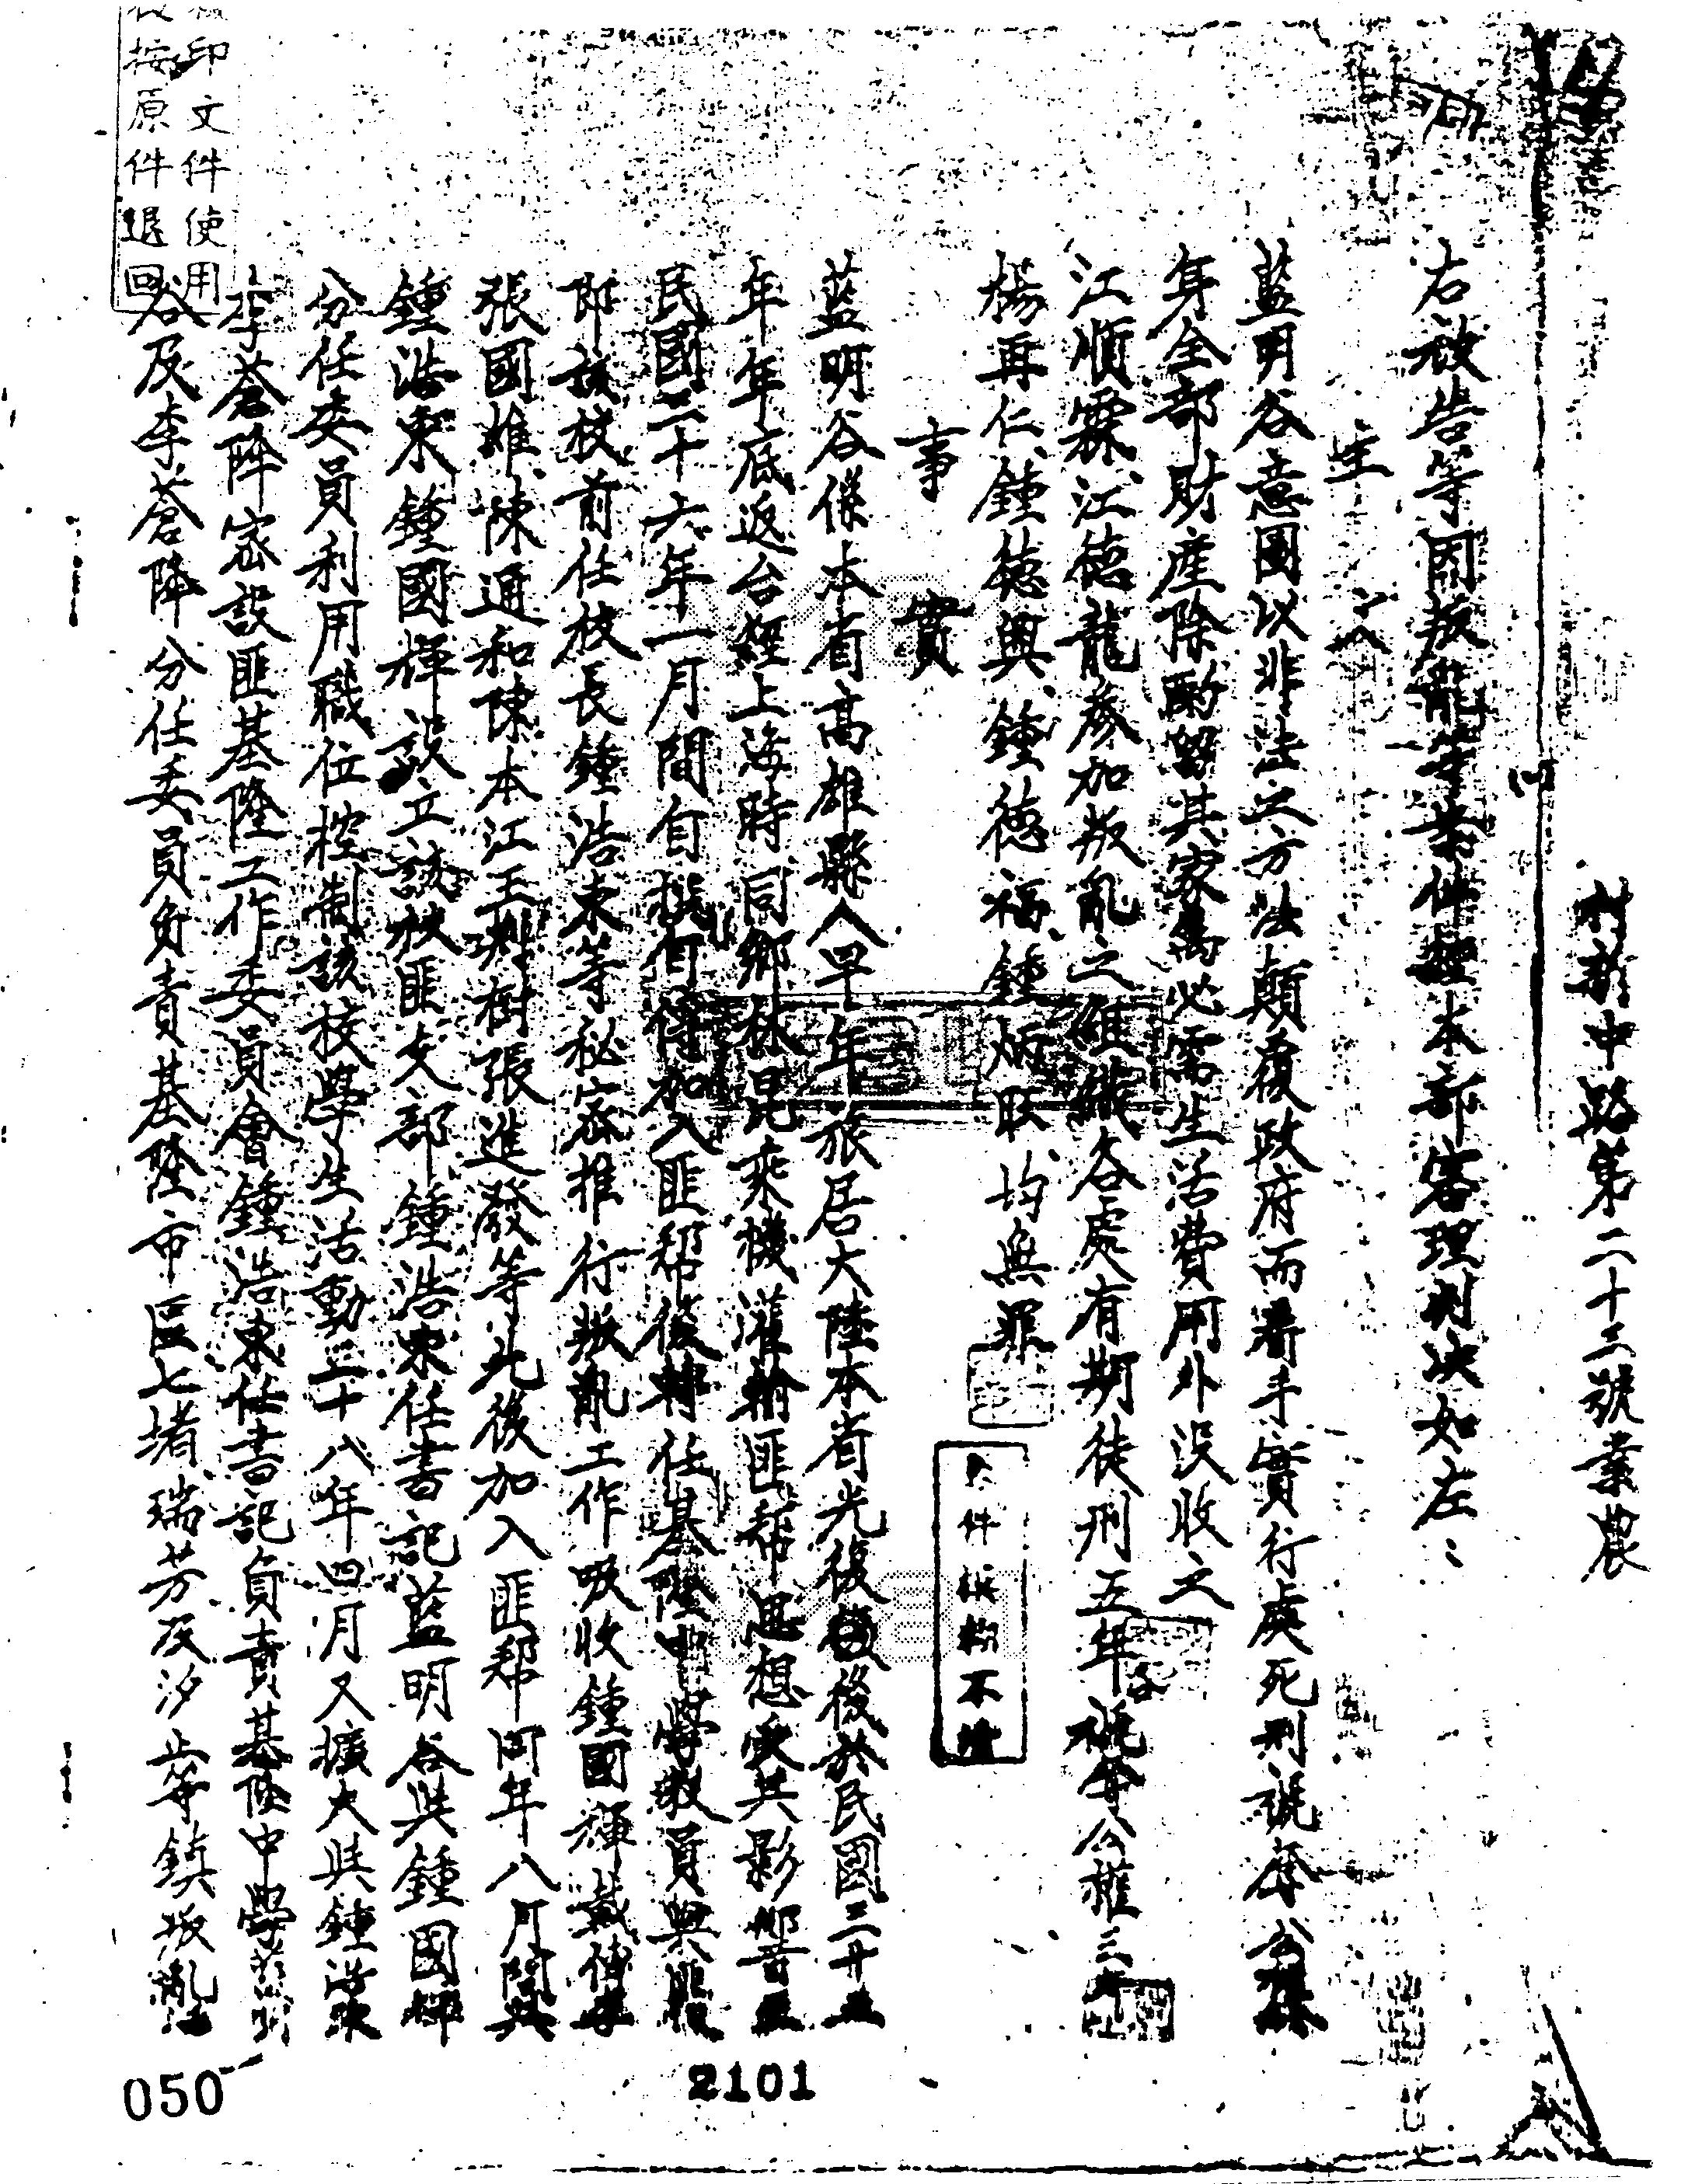 村新中路第二十三號業農
右被告等因叛亂等案件經本部審理判決如左：
主文
藍明谷意圖以非法之方法顛覆政府而着手實行處死刑褫奪公權終
身全部財產除酌留其家屬必需生活費用外沒收之
江順霖、江德龍參加叛亂之組織各處有期徒刑五年褫奪公權三年
楊再仁、鍾德興、鍾德福、鍾炳旺、均無罪
本件模糊不清
事實
藍明谷係本省高雄縣人早年旅居大陸本省光復後於民國三十五
年年底返台經上海時同鄉林昆乘機灌輸匪幫思想受其影響
民國三十六年一月間自加入匪幫後轉任基隆中學教員與
即該校前任校長鍾浩東等秘密推行叛亂工作吸收鍾國輝戴傳李
張國雄、陳通和陳本江王樹張進發等先後加入匪幫同年八月間與
鍾浩東鍾國輝設立該校匪支部鍾浩東任書記藍明谷與鍾國輝
分任委員利用職位控制該校學生活動三十八年四月又擴大與鍾浩東
李蒼降密設匪基隆工作委員會鍾浩東任書記負責基隆中學藍明
谷及李蒼降分任委員負責基隆市區七堵、瑞芳及汐止等鎮叛亂
印文件使用
按原件退回
2101
050